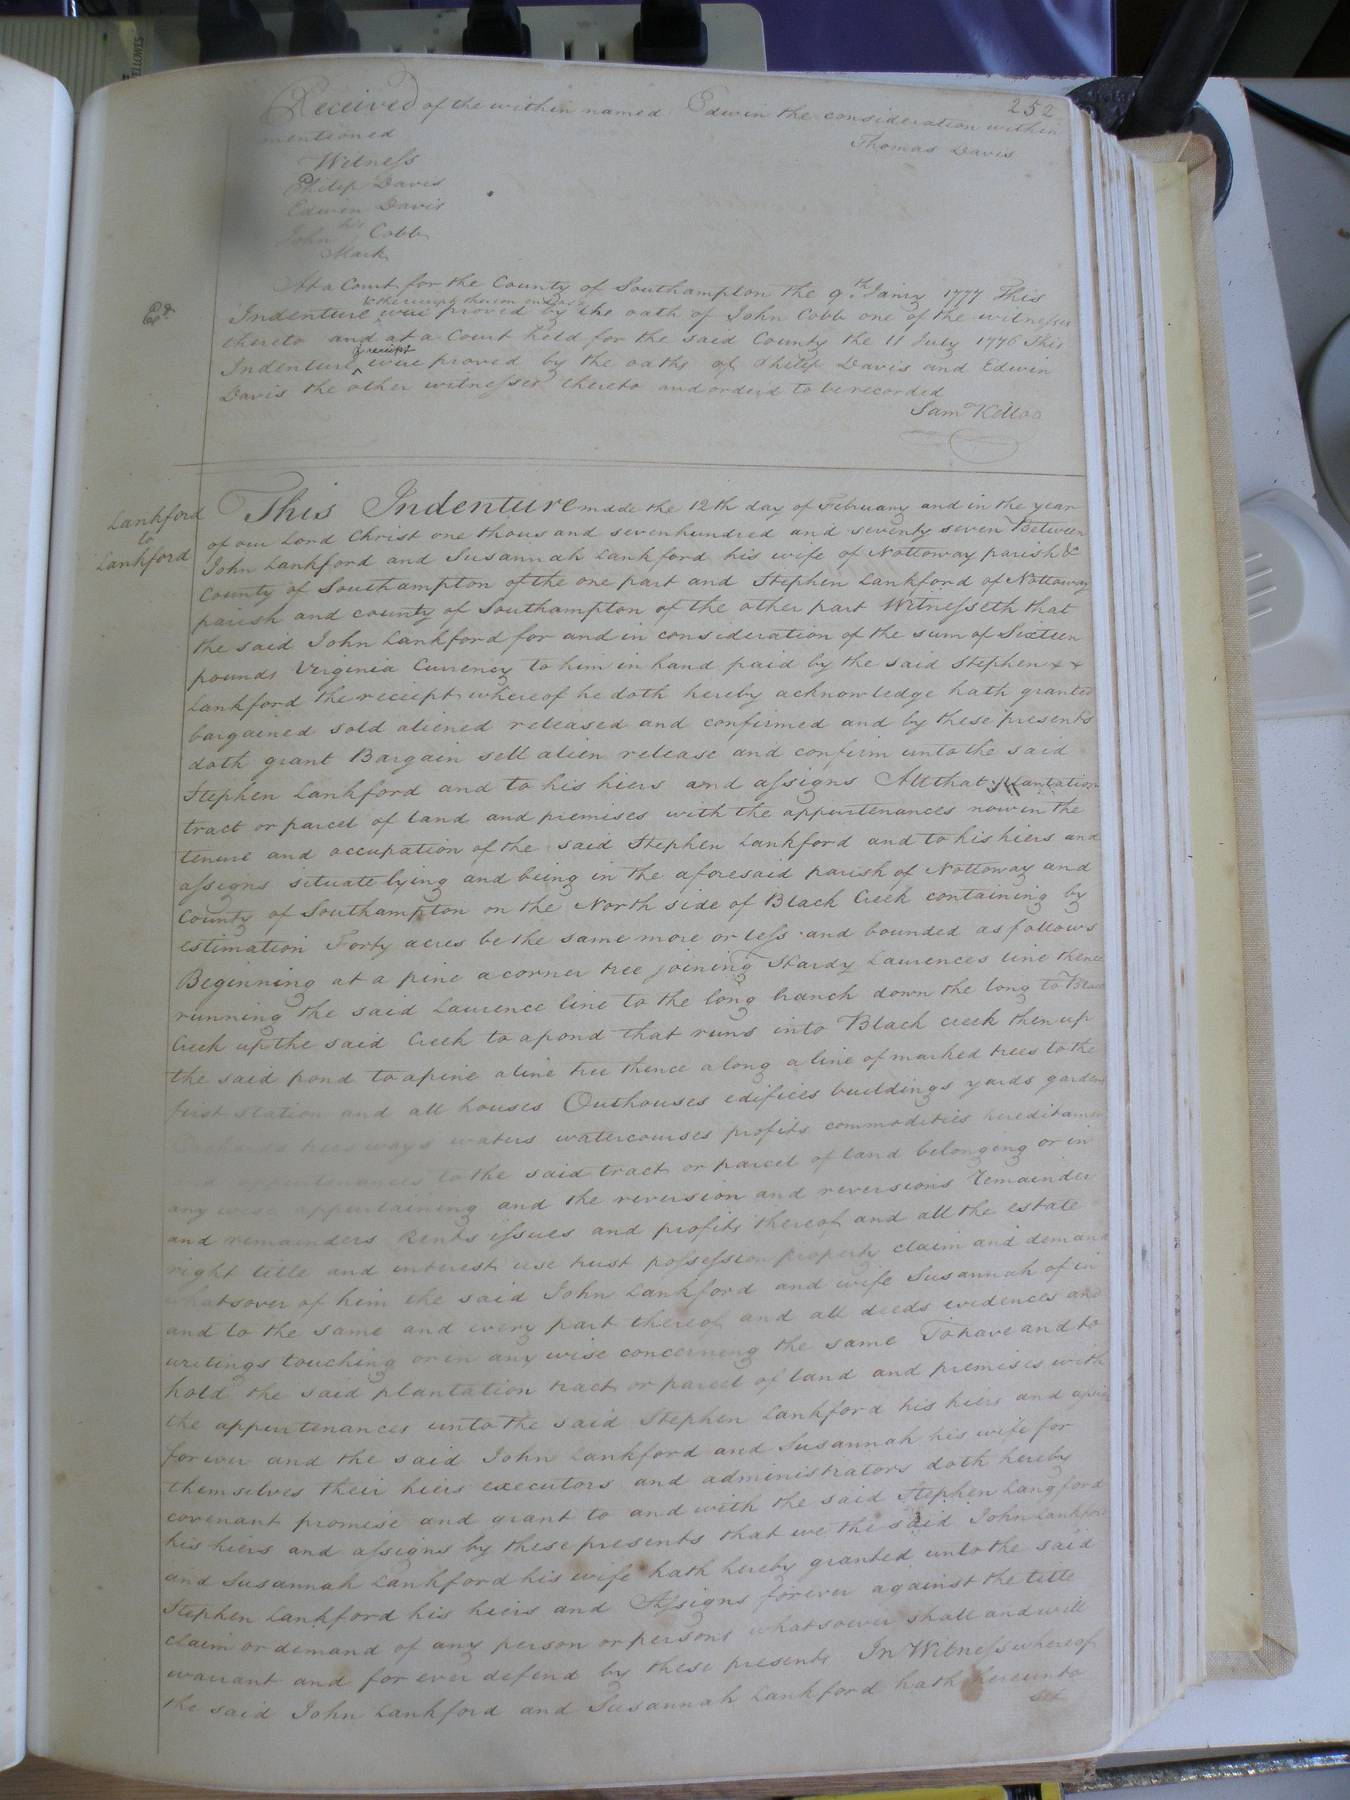 252
Received of the within named Edwin the consideration within
mentioned
Thomas Davis
Witness
Philip Davis
Edwin Davis
his
John Cobb
Mark
At a Court for the County of Southampton the 9th Janry 1777 This
& the receipt thereon
Indenture were proved by the oath of John Cobb one of the witnesses
thereto and at a Court held for the said County the 11 July 1776 This
& receipt
Indenture were proved by the oaths of Philip Davis and Edwin
Davis the other witnesses thereto and orderd to be recorded
Sam Kello
Exd
Lankford
to
Lankford
This Indenture made the 12th day of February and in the year
of our Lord Christ one thousand seven hundred and seventy seven Between
John Lankford and Susannah Lankford his wife of Nottoway parish &
County of Southampton of the one part and Stephen Lankford of Nottoway
parish and county of Southampton of the other part Witnesseth that
the said John Lankford for and in consideration of the sum of Sixteen
pounds Virginia Currency to him in hand paid by the said Stephen x x
Lankford the receipt whereof he doth hereby acknowledge hath granted
bargained sold aliened released and confirmed and by these presents
doth grant Bargain sell alien release and confirm unto the said
Stephen Lankford and to his hiers and assigns All that plantation
tract or parcel of land and premises with the appurtenances now in the
tenure and occupation of the said Stephen Lankford and to his hiers and
assigns situate lying and being in the aforesaid parish of Nottoway and
County of Southampton on the North side of Black Creek containing by
estimation Forty acres be the same more or less and bounded as follows
Beginning at a pine a corner tree joining Hardy Laurences line thence
running the said Laurence line to the long branch down the long to Black
Creek up the said Creek to a pond that runs into Black creek then up
the said pond to a pine a line tree thence along a line of marked trees to the
first station and all houses Outhouses edifices buildings yards gardens
Orchards trees ways waters watercourses profits commodities hereditaments
and appurtenances to the said tract or parcel of land belonging or in
any wise appertaining and the reversion and reversions remainder
and remainders Rents issues and profits thereof and all the estate
right title and interest use trust possession property claim and demand
whatsover of him the said John Lankford and wife Susannah of in
and to the same and every part thereof and all deeds evidences and
writings touching or in any wise concerning the same To have and to
hold the said plantation tract or parcel of land and premises with
the appurtenances unto the said Stephen Lankford his hiers and assigns
forever and the said John Lankford and Susannah his wife for
themselves their hiers executors and administrators doth hereby
covenant promise and grant to and with the said Stephen Langford
his hiers and assigns by these presents that we the said John Lankford
and Susannah Lankford his wife hath hereby granted unto the said
Stephen Lankford his hiers and Assigns forever against the title
claim or demand of any person or persons whatsoever shall and will
warrant and for ever defend by these presents In Witness whereof
the said John Lankford and Susannah Lankford hath hereunto
set